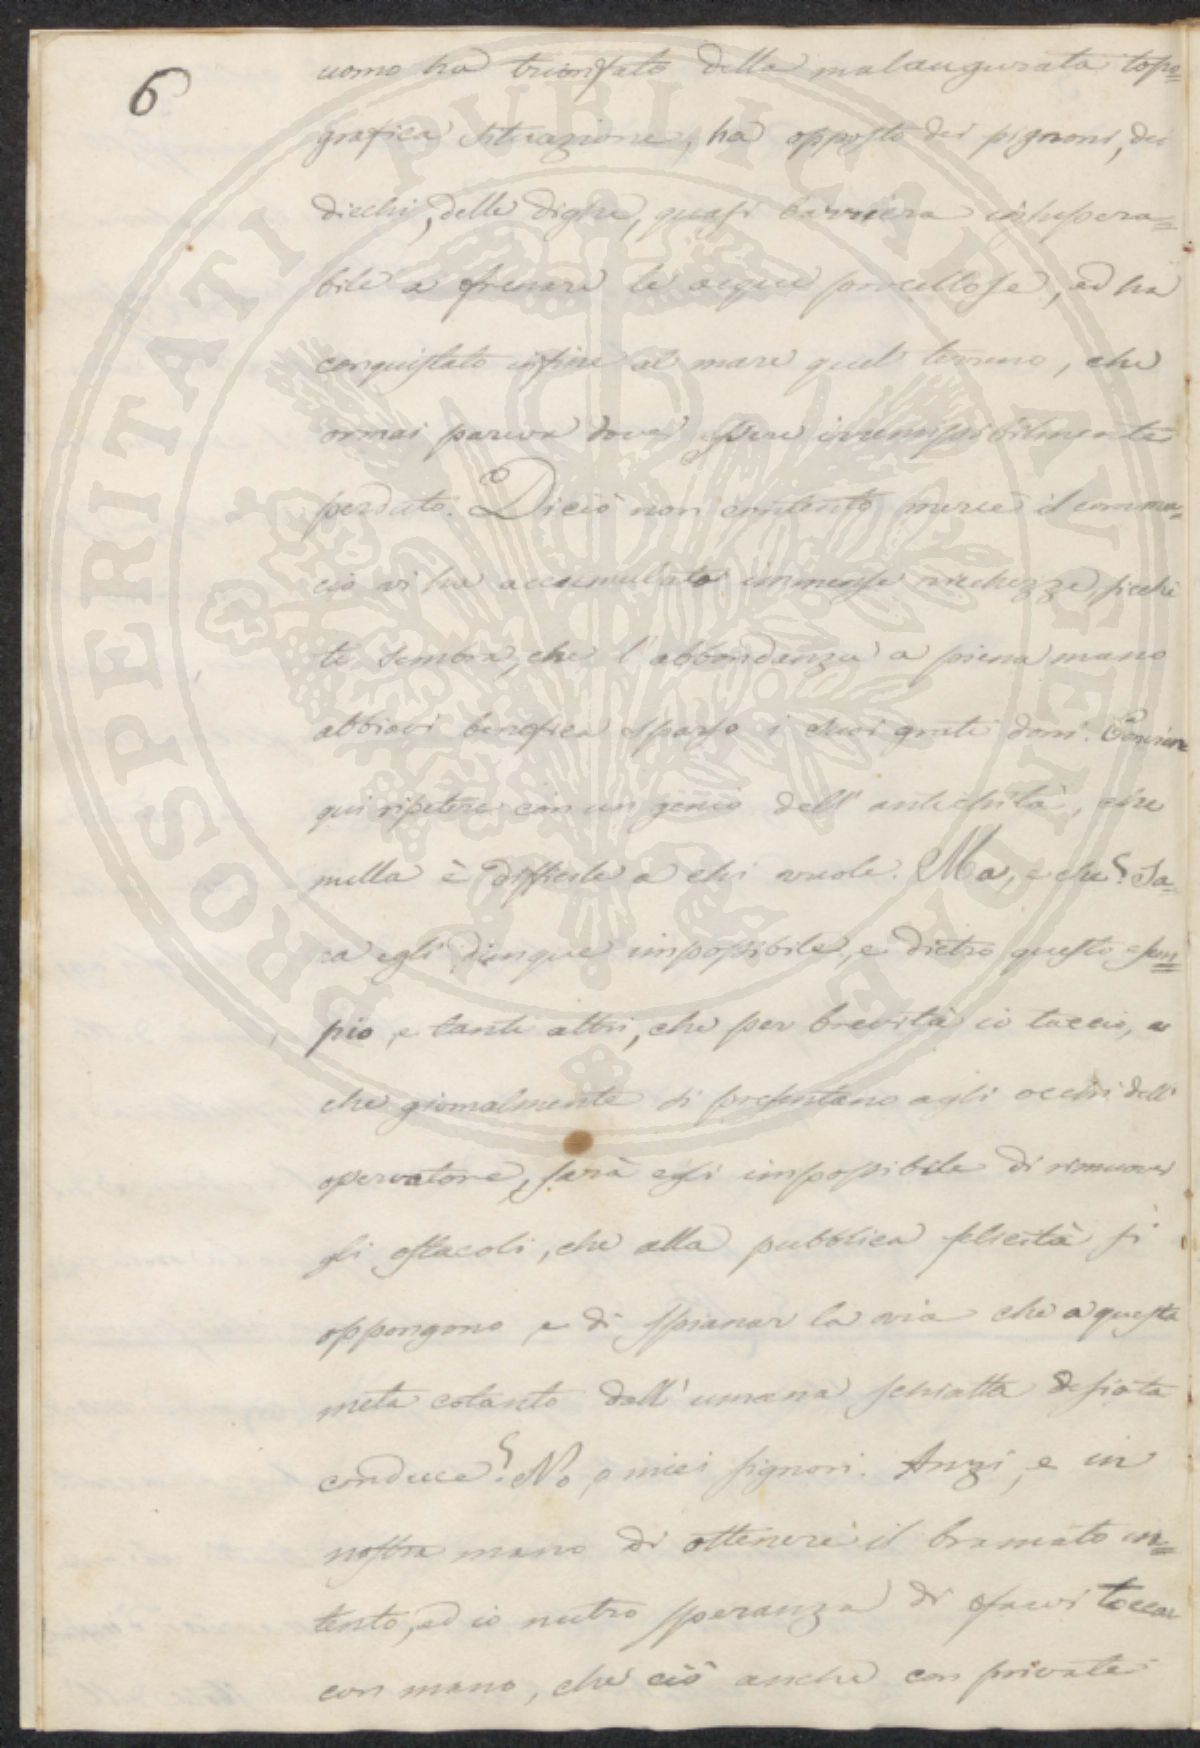 6
uomo ha trionfato della malaugurata topo=
grafica situazione, ha opposto dei pignoni, dei
dicchi, delle dighe, quasi barriera insupera=
bile a frenare le acque procellose, ed ha
conquistato infine al mare quel terreno, che
ormai pareva dover essere irremissibilmente
perduto. Di ciò non contento mercè il comme=
cio vi ha accumulato immense ricchezze, sicchè
ti sembra, che l'abbondanza a piena mano
abbiavi benefica sparso i suoi grati doni. Conviene
qui ripetere con un genio dell'antichità, che
nulla è difficile a chi vuole. Ma, e che? Sa=
ra egli dunque impossibile, e dietro questo esem=
pio, e tanti altri, che per brevità io taccio, e
che giornalmente si presentano agli occhi dell'
osservatore, sarà egli impossibile di rimuover
gli ostacoli, che alla pubblica felicità si
oppongono e di spianar la via che a questa
meta cotanto dall'umana schiatta desiata
conduce? No, o miei signori. Anzi, e in
nostra mano di ottenere il bramato in=
tento, ed io nutro speranza di farvi toccar
con mano, che ciò anche con private
PROSPERITATI PUBLICAE AUGENDAE